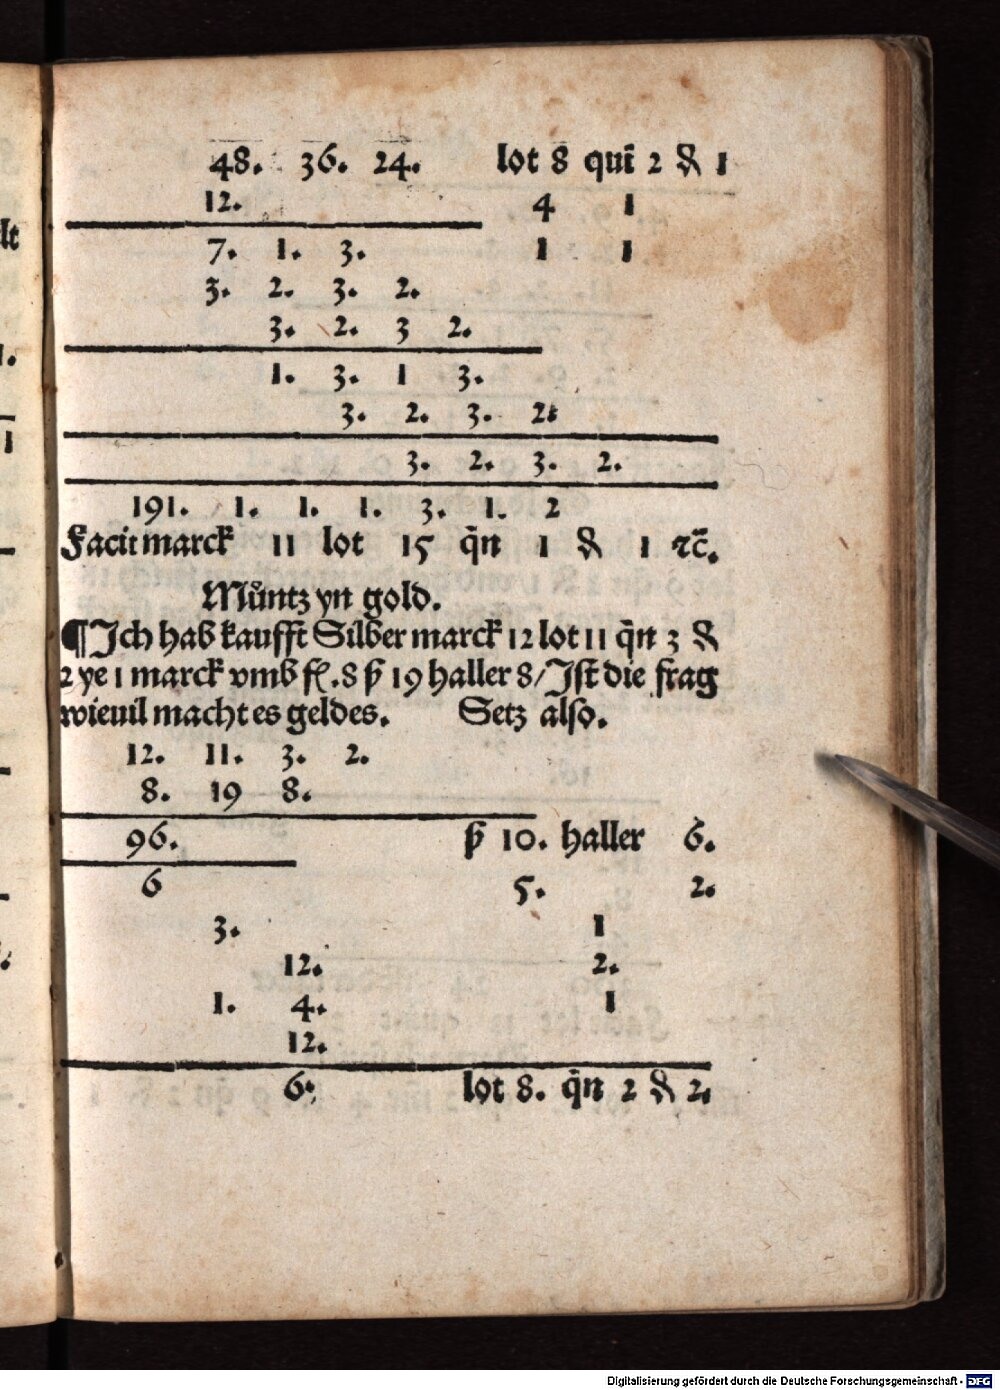 48. 36. 24. lot 8 quī 2 ₰ 1
12. 4 1
7. 1. 3. 1 1
3. 2. 3. 2.
3. 2. 3 2.
1. 3. 1 3.
3. 2. 3. 2.
3. 2. 3. 2.
191. 1. 1. 1. 3. 1. 2
Facit marck 11 lot 15 q̄n 1 ₰ 1 ꝛc̄.
Müntz yn gold.
¶Ich hab kaufft Silber marck 12 lot 11 q̄n 3 ₰
2 ye 1 marck vmb fl. 8 ß 19 haller 8/Ist die frag
wieuil macht es geldes. Setz also.
12. 11. 3. 2.
8. 19 8.
96. ß 10. haller 6.
6 5. 2.
3. 1
12. 2.
1. 4. 1
12.
6. lot 8. q̄n 2 ₰ 2.
Digitalisierung gefördert durch die Deutsche Forschungsgemeinschaft - DFG